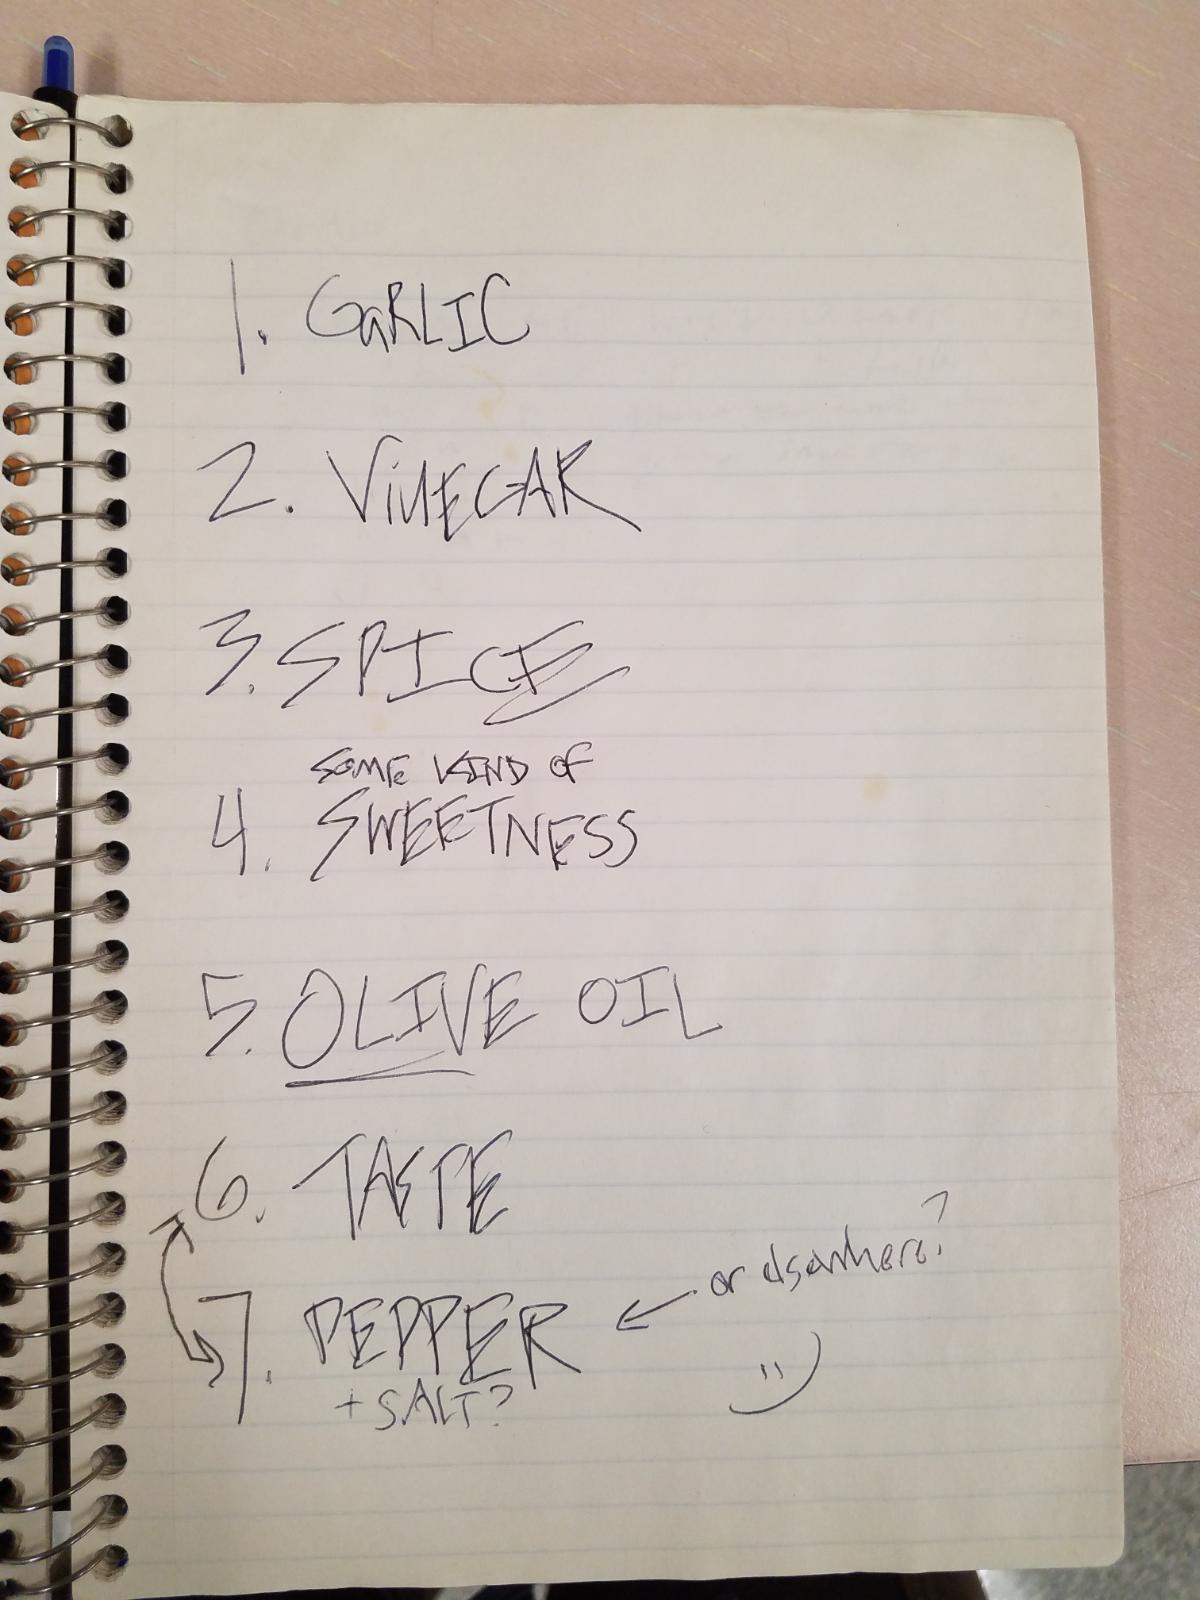 1. GaRLIC
2. ViNEGAR
3. SPICE
SOME KIND OF
4. SWEETNESS
5. OLIVE OIL
6. TASTE
7. PEPPER ← or elsewhere?
+ SALT?